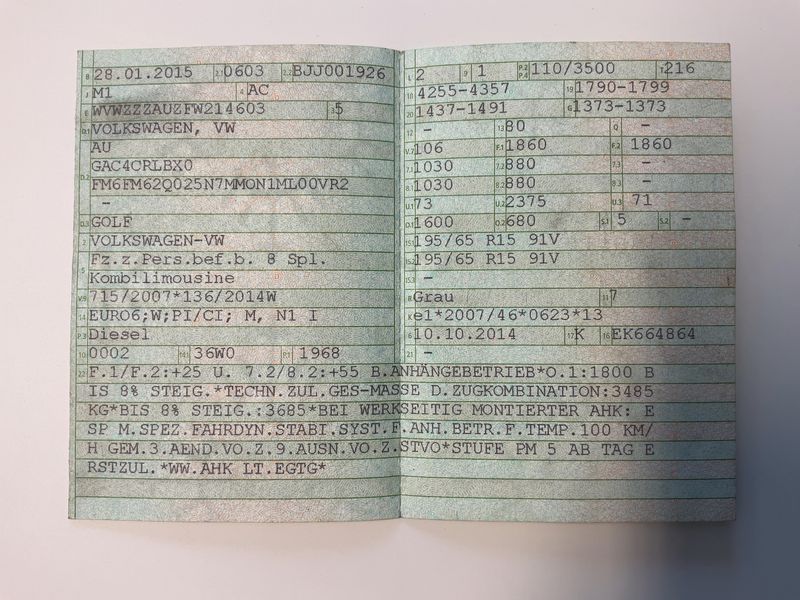 B 28.01.2015 2.1 0603 2.2 BJJ001926
J M1 4 AC
E WVWZZZAUZFW214603 3 5
D.1 VOLKSWAGEN, VW
AU
D.2 GAC4CRLBX0
FM6FM62Q025N7MMON1ML00VR2
–
D.3 GOLF
2 VOLKSWAGEN-VW
5 Fz.z.Pers.bef.b. 8 Spl.
Kombilimousine
V.9 715/2007*136/2014W
14 EURO6;W;PI/CI; M, N1 I
P.3 Diesel
10 0002 14.1 36W0 P.1 1968
L 2 9 1 P.2 P.4 110/3500 T 216
18 4255-4357 19 1790-1799
20 1437-1491 G 1373-1373
12 – 13 80 Q –
V.7 106 F.1 1860 F.2 1860
7.1 1030 7.2 880 7.3 –
8.1 1030 8.2 880 8.3 –
U.1 73 U.2 2375 U.3 71
O.1 1600 O.2 680 S.1 5 S.2 –
15.1 195/65 R15 91V
15.2 195/65 R15 91V
15.3 –
R Grau 11 7
K e1*2007/46*0623*13
6 10.10.2014 17 K 16 EK664864
21 –
22 F.1/F.2:+25 U. 7.2/8.2:+55 B.ANHÄNGEBETRIEB*O.1:1800 B
IS 8% STEIG.*TECHN.ZUL.GES-MASSE D.ZUGKOMBINATION:3485
KG*BIS 8% STEIG.:3685*BEI WERKSEITIG MONTIERTER AHK: E
SP M.SPEZ.FAHRDYN.STABI.SYST.F.ANH.BETR.F.TEMP.100 KM/
H GEM.3.AEND.VO.Z.9.AUSN.VO.Z.STVO*STUFE PM 5 AB TAG E
RSTZUL.*WW.AHK LT.EGTG*